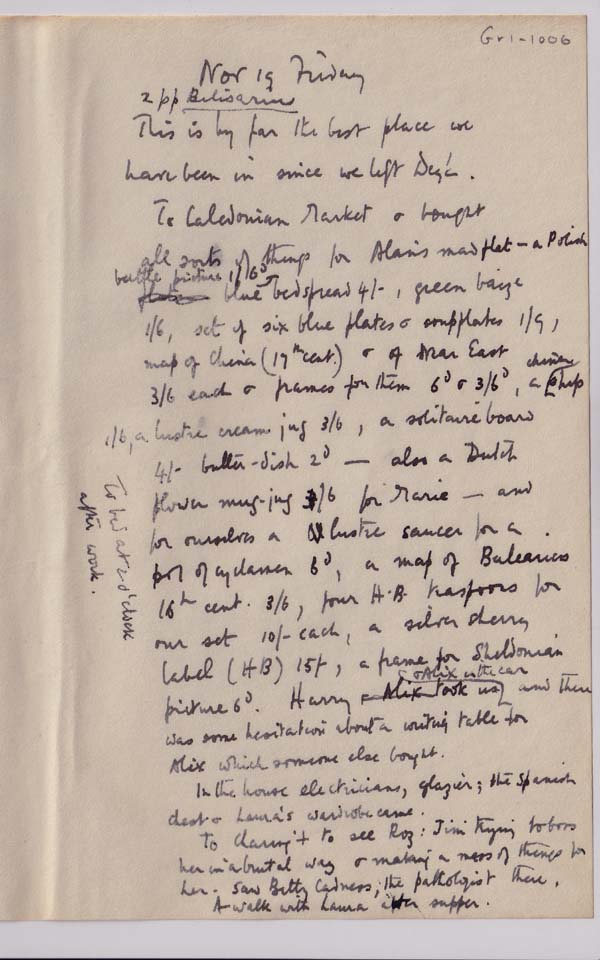 Gr1-1006
Nov 19 Friday
2 pp Belisarius
This is by far the best place we
have been in since we left Deyá.
To Caledonian Market & bought
all sorts of things for Alan's mad flat — a Polish
battle picture 1/6d
blue bedspread 4/-, green baize
1/6, set of six blue plates & soupplates 1/9,
map of China (17th cent.) & of Near East
3/6 each & frames for them 6d & 3/6d, a chinese ship
1/6, a lustre cream jug 3/6, a solitaire board
4/- butter-dish 2d — also a Dutch
flower mug-jug 3/6 for Marie — and
for ourselves a lustre saucer for a
pot of cyclamen 6d, a map of Balearics
16th cent. 3/6, four H.B. teaspoons for
our set 10/- each, a silver sherry
label (HB) 15/-, a frame for Sheldonian
picture 6d. Harry & Alix in the car
Alix took us and there
was some hesitation about a writing table for
Alix which someone else bought.
In the house electricians, glazier; the Spanish
chest & Laura's wardrobe came.
To Charing + to see Roz: Jim trying to boss
her in a brutal way & making a mess of things for
her. Saw Betty Cadness; the pathologist there.
A walk with Laura after supper.
To bed at 2 o'clock
after work.